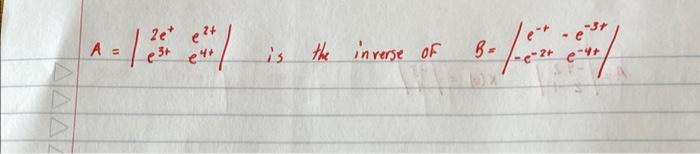 A = | 2e^t e^2t e^3t e^4t | is the inverse of B = | e^-t - e^-3t -e^-2t e^-4t |